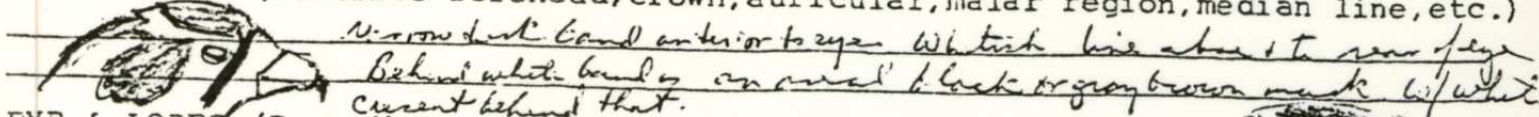 forehead/crown, auricular, malar region, median line, etc.)
Narrow dark band anterior to eye. Whitish line above & to rear of eye
Behind white band is an oval black or gray brown mark w/ white
crescent behind that.
EYE & LORES